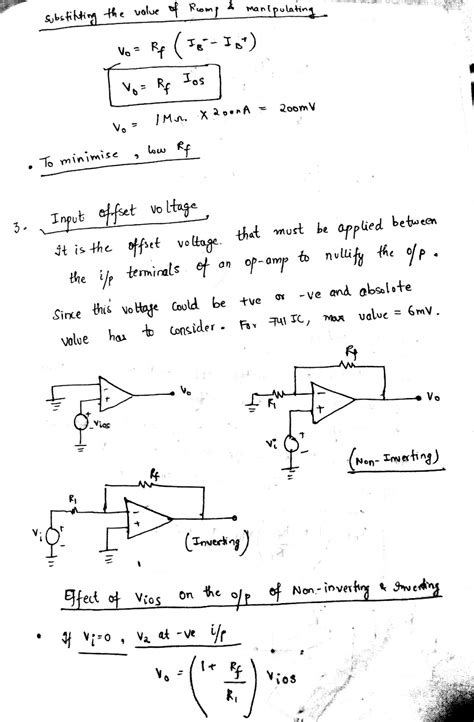 Substituting the value of Rcomp & manipulating
Vo = Rf (IB⁻ - IB⁺)
Vo = Rf Ios
Vo = 1MΩ X 200nA = 200mV
• To minimise, low Rf
3. Input offset voltage,
It is the offset voltage that must be applied between
the i/p terminals of an op-amp to nullify the o/p.
Since this voltage could be +ve or -ve and absolute
value has to consider. For 741 IC, max value = 6mv.
Vo
Vios
Rf
R1
Vo
Vi
(Non-Inverting)
Rf
R1
Vi
(Inverting)
Effect of Vios on the o/p of Non-inverting & Inverting
• If Vi=0, V2 at -ve i/p
Vo = (1 + Rf/R1) Vios